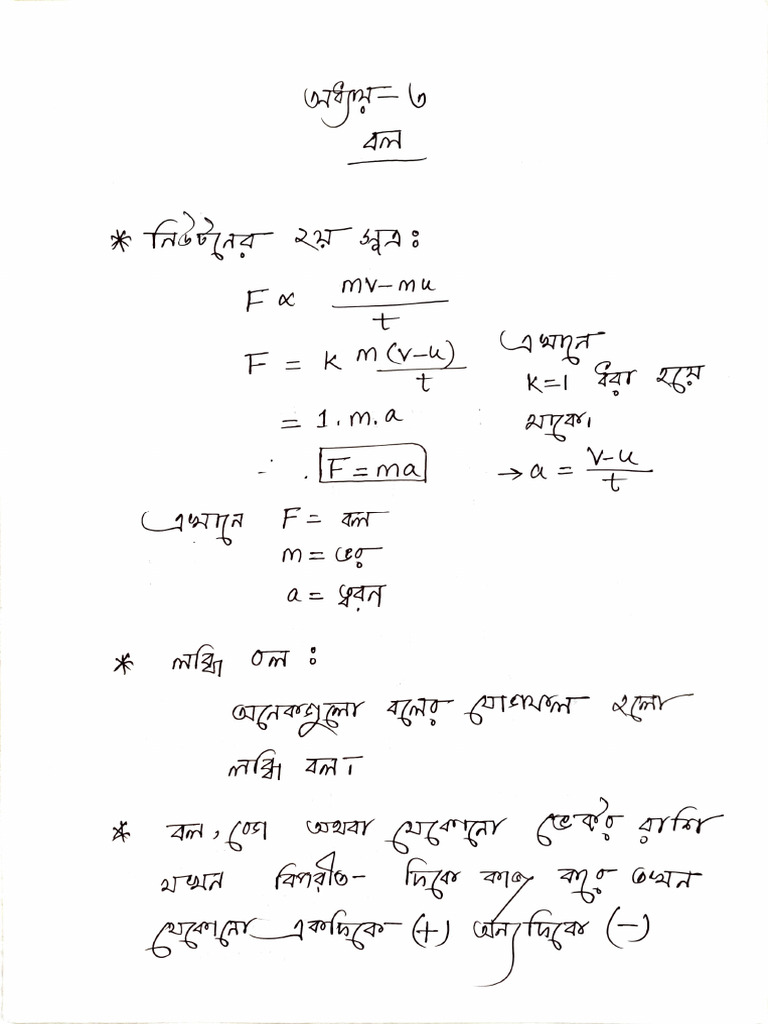 অধ্যায় - ৩
বল
* নিউটনের ২য় সূত্র :
F ∝ (mv - mu)/t
F = k m(v-u)/t এখানে k=1 ধরা হয়ে থাকে।
= 1.m.a
∴ F = ma → a = (v-u)/t
এখানে F = বল
m = ভর
a = ত্বরন
* লব্ধি বল :
অনেকগুলো বলের যোগফল হলো
লব্ধি বল।
* বল, বেগ অথবা যেকোনো ভেক্টর রাশি
যখন বিপরীত- দিকে কাজ করে তখন
যেকোনো একদিকে (+) অন্যদিকে (-)